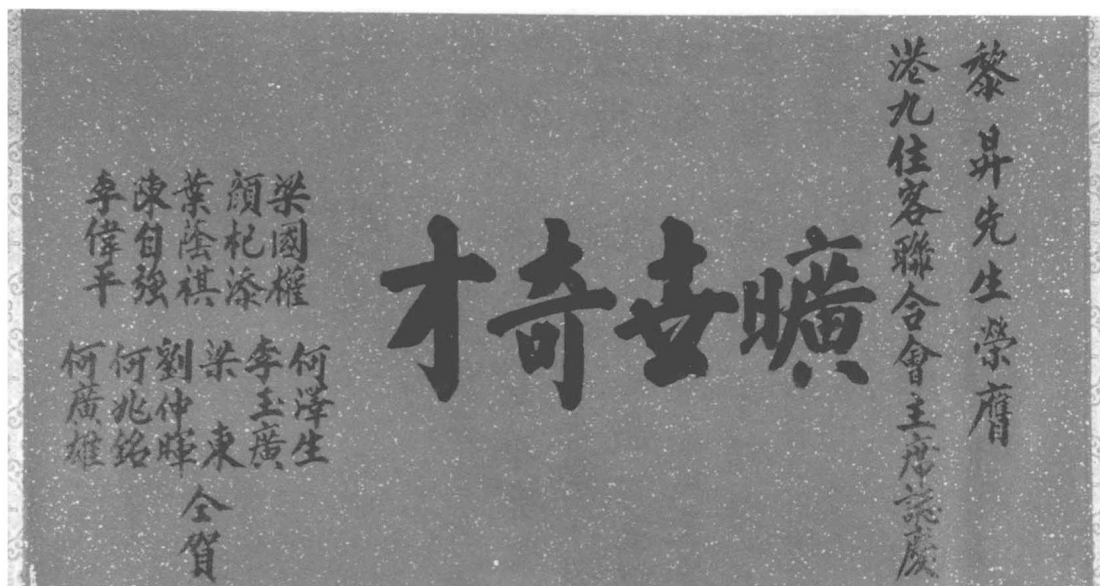 黎昇先生榮膺
港九住客聯合會主席誌慶
曠世奇才
梁國權
顏杞漆
葉蔭祺
陳自強
李偉平
何澤生
李玉廣
梁東
劉仲暉
何兆銘
何廣雄
仝賀